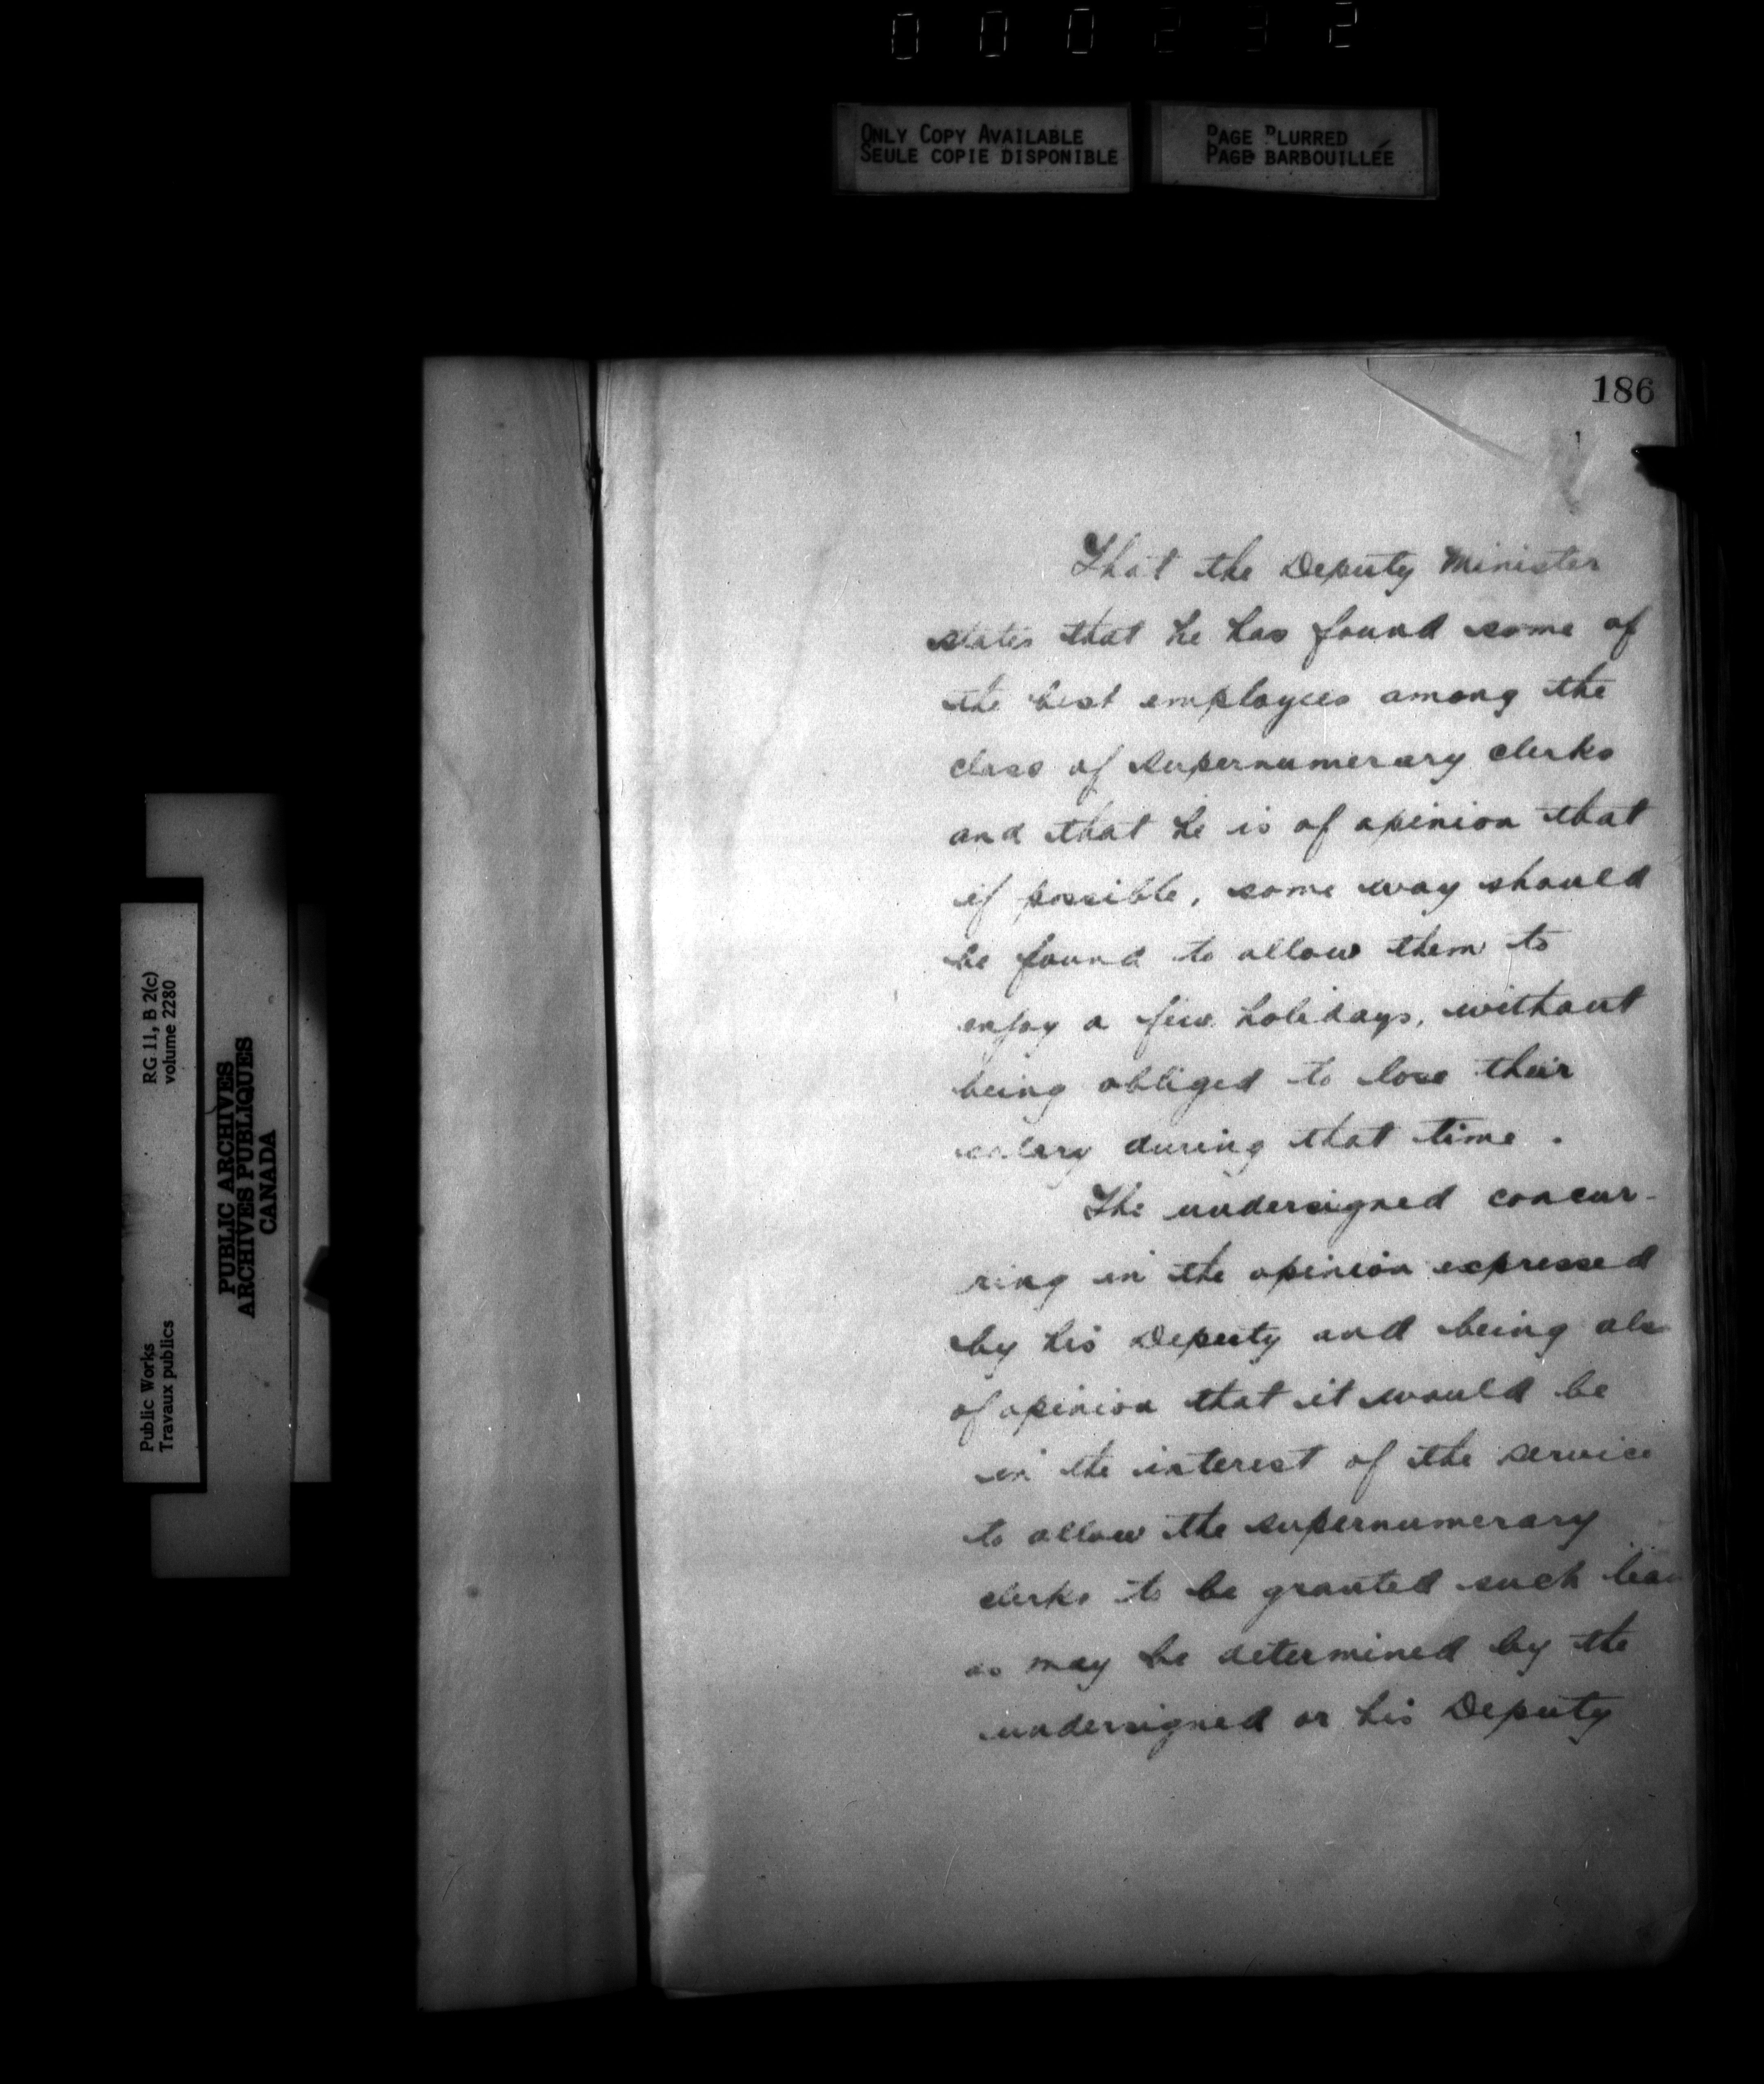 000232
ONLY COPY AVAILABLE
SEULE COPIE DISPONIBLE
PAGE BLURRED
PAGE BARBOUILLÉE
186
That the Deputy Minister
states that he has found some of
the best employees among the
class of supernumerary clerks
and that he is of opinion that
if possible, some way should
be found to allow them to
enjoy a few holidays, without
being obliged to lose their
salary during that time.
The undersigned concur-
ring in the opinion expressed
by his Deputy and being als
of opinion that it would be
in the interest of the service
to allow the supernumerary
clerks to be granted such leav
as may be determined by the
undersigned or his Deputy
RG 11, B 2(c)
volume 2280
Public Works
Travaux publics
PUBLIC ARCHIVES
ARCHIVES PUBLIQUES
CANADA